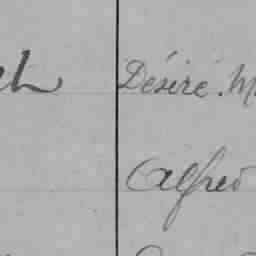 Désiré. M
Alfred